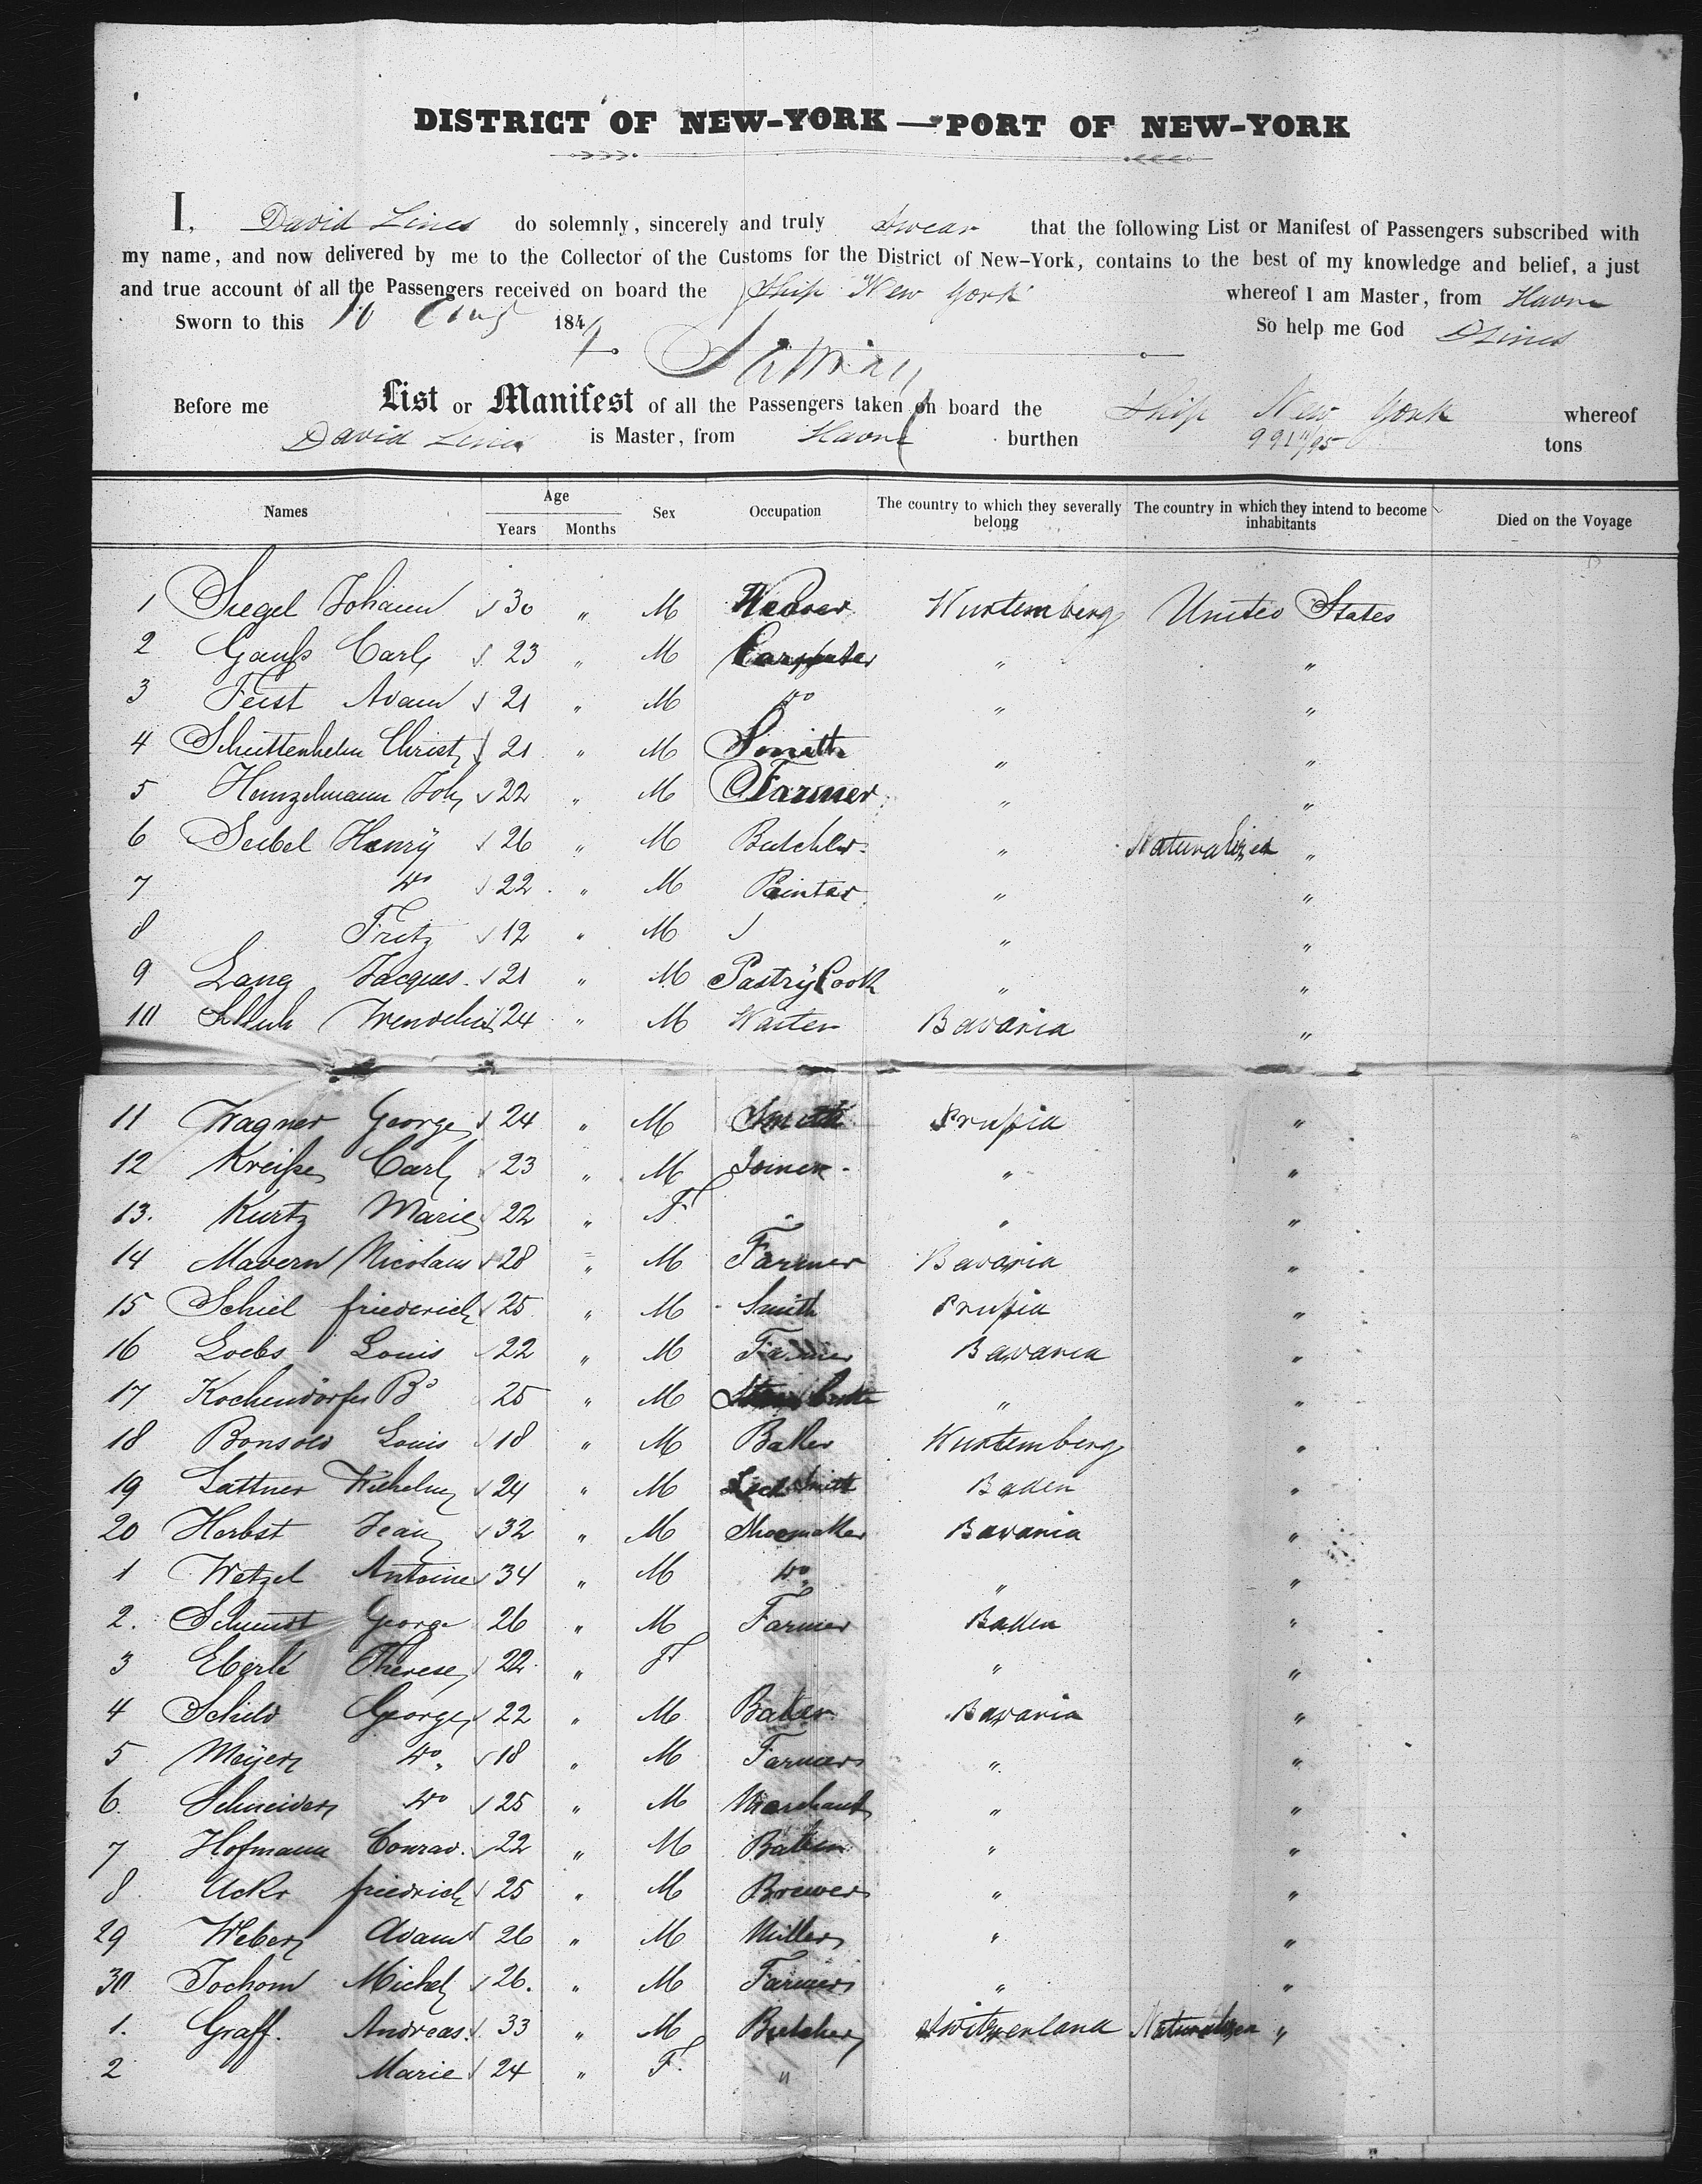 DISTRICT OF NEW-YORK — PORT OF NEW-YORK
I, David Lines do solemnly, sincerely and truly Swear that the following List or Manifest of Passengers subscribed with
my name, and now delivered by me to the Collector of the Customs for the District of New-York, contains to the best of my knowledge and belief, a just
and true account of all the Passengers received on board the Ship New York whereof I am Master, from Havre
Sworn to this 10 Aug 184 So help me God DLines
Before me List or Manifest of all the Passengers taken on board the Ship New York whereof
David Lines is Master, from Havre burthen 991 /95 tons
Names Age Years Months Sex Occupation The country to which they severally belong The country in which they intend to become inhabitants Died on the Voyage
1 Siegel Johann 30 " M Weaver Wurtemberg United States
2 Gauss Carl 23 " M Carpenter " "
3 Feist Adam 21 " M do " "
4 Schuttenhelm Christ 21 " M Smith " "
5 Heinzelmann Joh 22 " M Farmer " "
6 Seibel Henry 26 " M Butcher " Naturalized "
7 do 22 " M Painter " "
8 Fritz 12 " M " "
9 Lang Jacques 21 " M Pastry Cook " "
10 24 " M Waiter Bavaria "
11 Wagner George 24 " M Smith Prussia "
12 Kreisse Carl 23 " M Joiner " "
13. Kurtz Marie 22 " F " "
14 Mavern Nicolaus 28 " M Farmer Bavaria "
15 Schiel friederich 25 " M Smith Prussia "
16 Loebs Louis 22 " M Farmer Bavaria "
17 Kochendörfer 25 " M " "
18 Bonsold Louis 18 " M Baker Wurtemberg "
19 Lattner Wilhelm 24 " M Lock Smith Baden "
20 Herbst Jean 32 " M Shoemaker Bavaria "
1 Wetzel Antoine 34 " M do " "
2. Schmidt George 26 " M Farmer Baden "
3 Eberle Therese 22 " F " "
4 Schild George 22 " M Baker Bavaria "
5 Meyer do 18 " M Farmer " "
6. Schneider do 25 " M Merchant " "
7 Hofmann Conrad. 22 " M Baker " "
8 Ackr friedrich 25 " M Brewer " "
29 Weber Adam 26 " M Miller " "
30 Jochom Michel 26. " M Farmer " "
1. Graff. Andreas. 33 " M Butcher Switzerland Naturalized "
2 Marie 24 " F. "